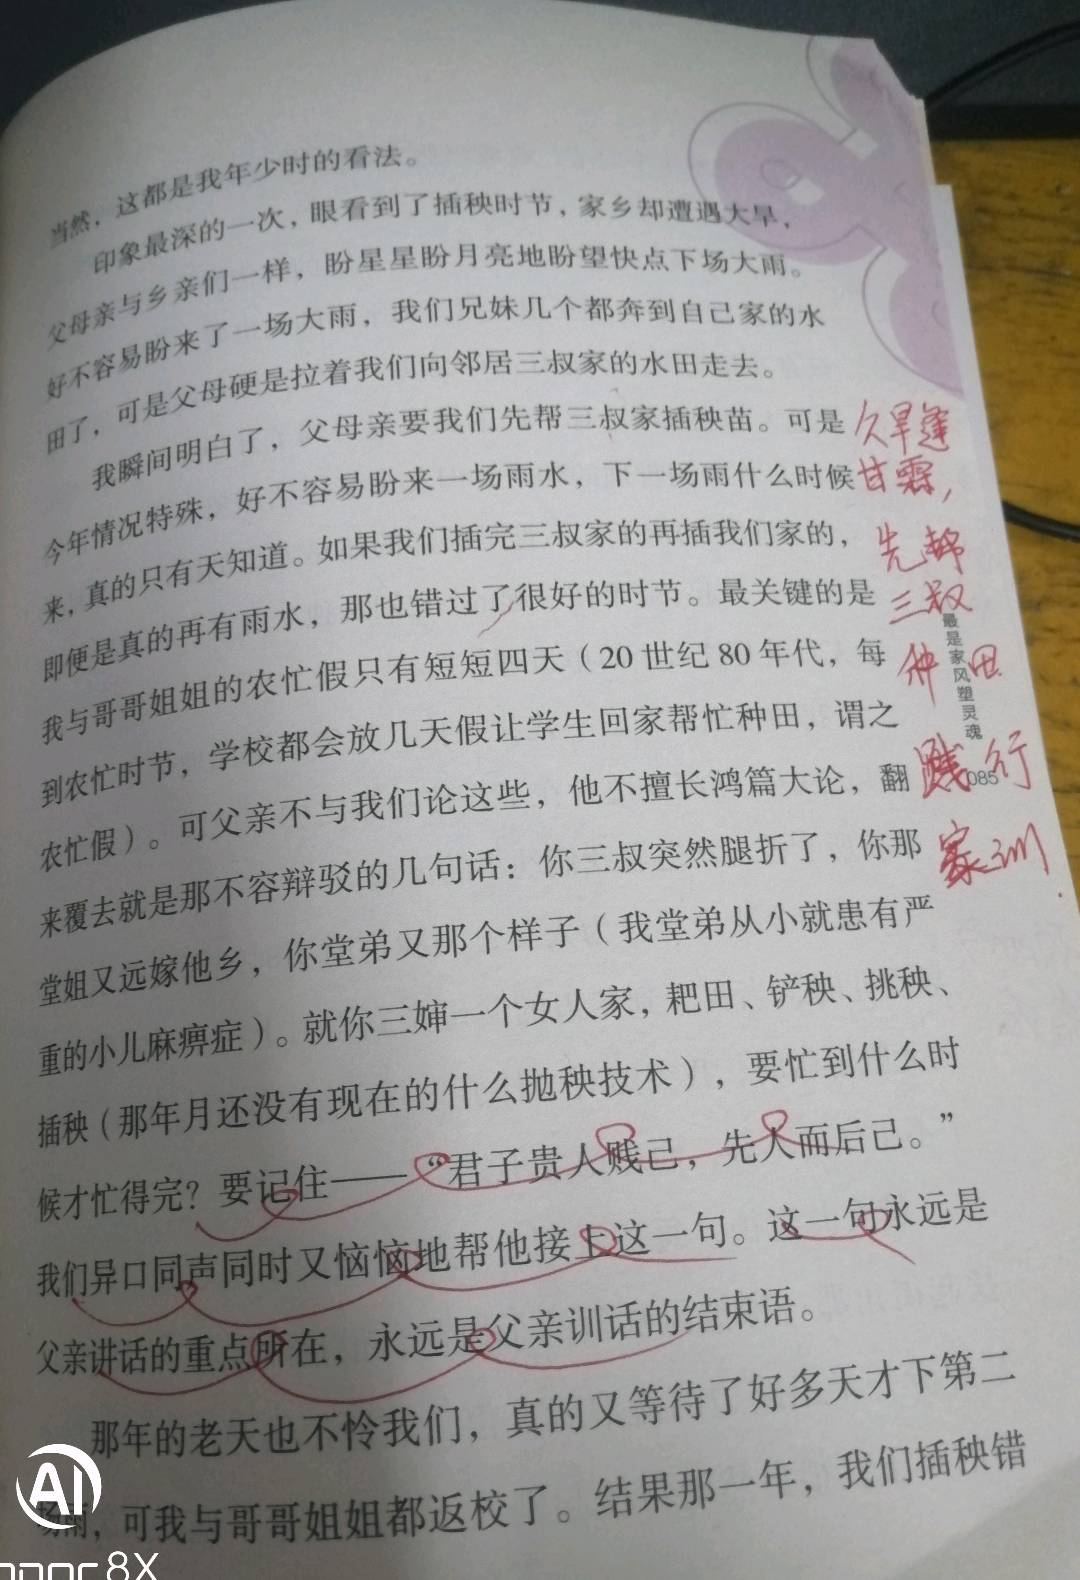 当然，这都是我年少时的看法。
印象最深的一次，眼看到了插秧时节，家乡却遭遇大旱，
父母亲与乡亲们一样，盼星星盼月亮地盼望快点下场大雨。
好不容易盼来了一场大雨，我们兄妹几个都奔到自己家的水
田了，可是父母硬是拉着我们向邻居三叔家的水田走去。
我瞬间明白了，父母亲要我们先帮三叔家插秧苗。可是
今年情况特殊，好不容易盼来一场雨水，下一场雨什么时候
来，真的只有天知道。如果我们插完三叔家的再插我们家的，
即便是真的再有雨水，那也错过了很好的时节。最关键的是
我与哥哥姐姐的农忙假只有短短四天（20世纪80年代，每
到农忙时节，学校都会放几天假让学生回家帮忙种田，谓之
农忙假）。可父亲不与我们论这些，他不擅长鸿篇大论，翻
来覆去就是那不容辩驳的几句话：你三叔突然腿折了，你那
堂姐又远嫁他乡，你堂弟又那个样子（我堂弟从小就患有严
重的小儿麻痹症）。就你三婶一个女人家，耙田、铲秧、挑秧、
插秧（那年月还没有现在的什么抛秧技术），要忙到什么时
候才忙得完？要记住——“君子贵人贱己，先人而后己。”
我们异口同声同时又恼恼地帮他接上这一句。这一句永远是
父亲讲话的重点所在，永远是父亲训话的结束语。
那年的老天也不怜我们，真的又等待了好多天才下第二
场雨，可我与哥哥姐姐都返校了。结果那一年，我们插秧错
久旱逢
甘霖，
先帮
三叔
种田
践行
家训
最是家风塑灵魂
085
AI
honor 8X